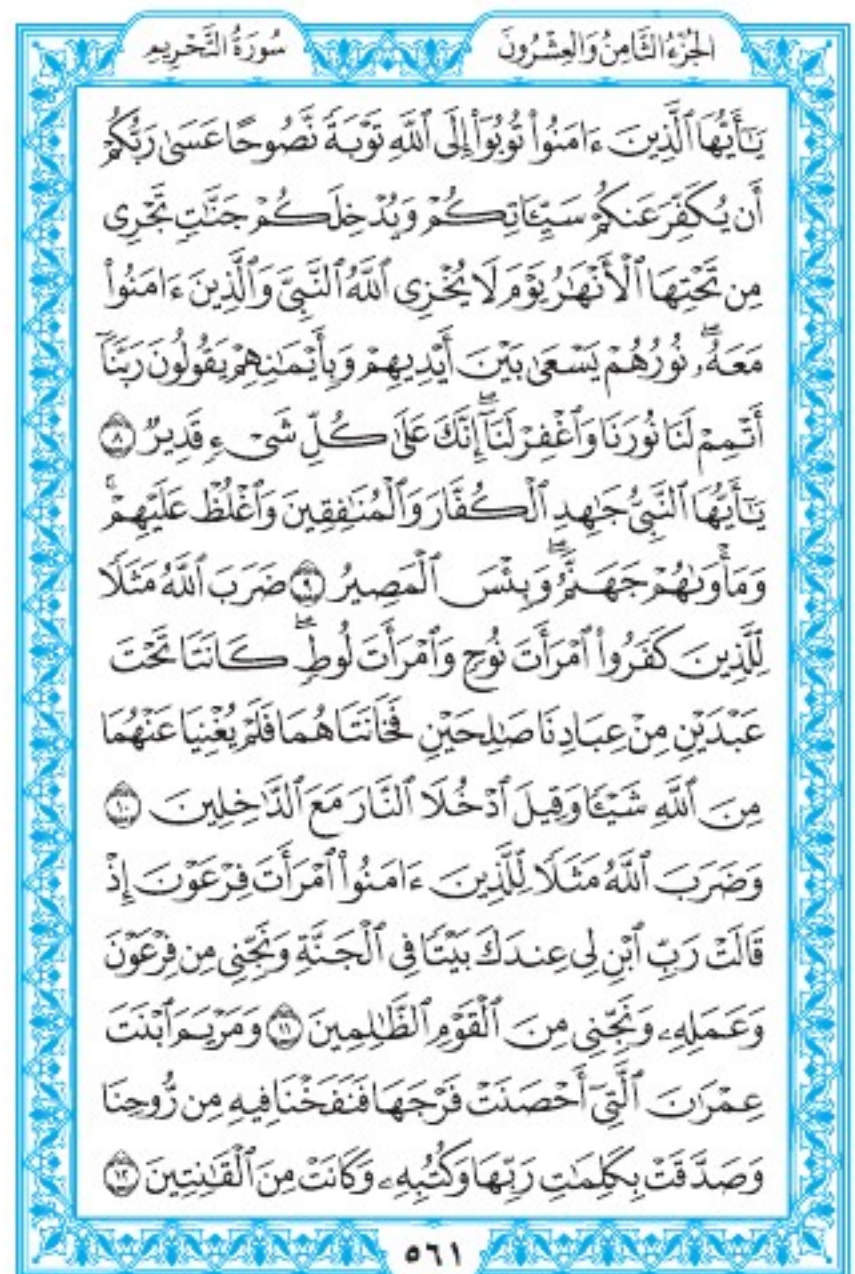 الجُزْءُ الثَّامِنُ وَالعِشْرُونَ
سُورَةُ التَّحْرِيمِ
يَـٰٓأَيُّهَا ٱلَّذِينَ ءَامَنُوا۟ تُوبُوٓا۟ إِلَى ٱللَّهِ تَوْبَةً نَّصُوحًا عَسَىٰ رَبُّكُمْ
أَن يُكَفِّرَ عَنكُمْ سَيِّـَٔاتِكُمْ وَيُدْخِلَكُمْ جَنَّـٰتٍ تَجْرِى
مِن تَحْتِهَا ٱلْأَنْهَـٰرُ يَوْمَ لَا يُخْزِى ٱللَّهُ ٱلنَّبِىَّ وَٱلَّذِينَ ءَامَنُوا۟
مَعَهُۥۖ نُورُهُمْ يَسْعَىٰ بَيْنَ أَيْدِيهِمْ وَبِأَيْمَـٰنِهِمْ يَقُولُونَ رَبَّنَآ
أَتْمِمْ لَنَا نُورَنَا وَٱغْفِرْ لَنَآۖ إِنَّكَ عَلَىٰ كُلِّ شَىْءٍ قَدِيرٌ ٨
يَـٰٓأَيُّهَا ٱلنَّبِىُّ جَـٰهِدِ ٱلْكُفَّارَ وَٱلْمُنَـٰفِقِينَ وَٱغْلُظْ عَلَيْهِمْۚ
وَمَأْوَىٰهُمْ جَهَنَّمُۖ وَبِئْسَ ٱلْمَصِيرُ ٩ ضَرَبَ ٱللَّهُ مَثَلًا
لِّلَّذِينَ كَفَرُوا۟ ٱمْرَأَتَ نُوحٍ وَٱمْرَأَتَ لُوطٍۖ كَانَتَا تَحْتَ
عَبْدَيْنِ مِنْ عِبَادِنَا صَـٰلِحَيْنِ فَخَانَتَاهُمَا فَلَمْ يُغْنِيَا عَنْهُمَا
مِنَ ٱللَّهِ شَيْـًٔا وَقِيلَ ٱدْخُلَا ٱلنَّارَ مَعَ ٱلدَّٰخِلِينَ ١٠
وَضَرَبَ ٱللَّهُ مَثَلًا لِّلَّذِينَ ءَامَنُوا۟ ٱمْرَأَتَ فِرْعَوْنَ إِذْ
قَالَتْ رَبِّ ٱبْنِ لِى عِندَكَ بَيْتًا فِى ٱلْجَنَّةِ وَنَجِّنِى مِن فِرْعَوْنَ
وَعَمَلِهِۦ وَنَجِّنِى مِنَ ٱلْقَوْمِ ٱلظَّـٰلِمِينَ ١١ وَمَرْيَمَ ٱبْنَتَ
عِمْرَٰنَ ٱلَّتِىٓ أَحْصَنَتْ فَرْجَهَا فَنَفَخْنَا فِيهِ مِن رُّوحِنَا
وَصَدَّقَتْ بِكَلِمَـٰتِ رَبِّهَا وَكُتُبِهِۦ وَكَانَتْ مِنَ ٱلْقَـٰنِتِينَ ١٢
٥٦١